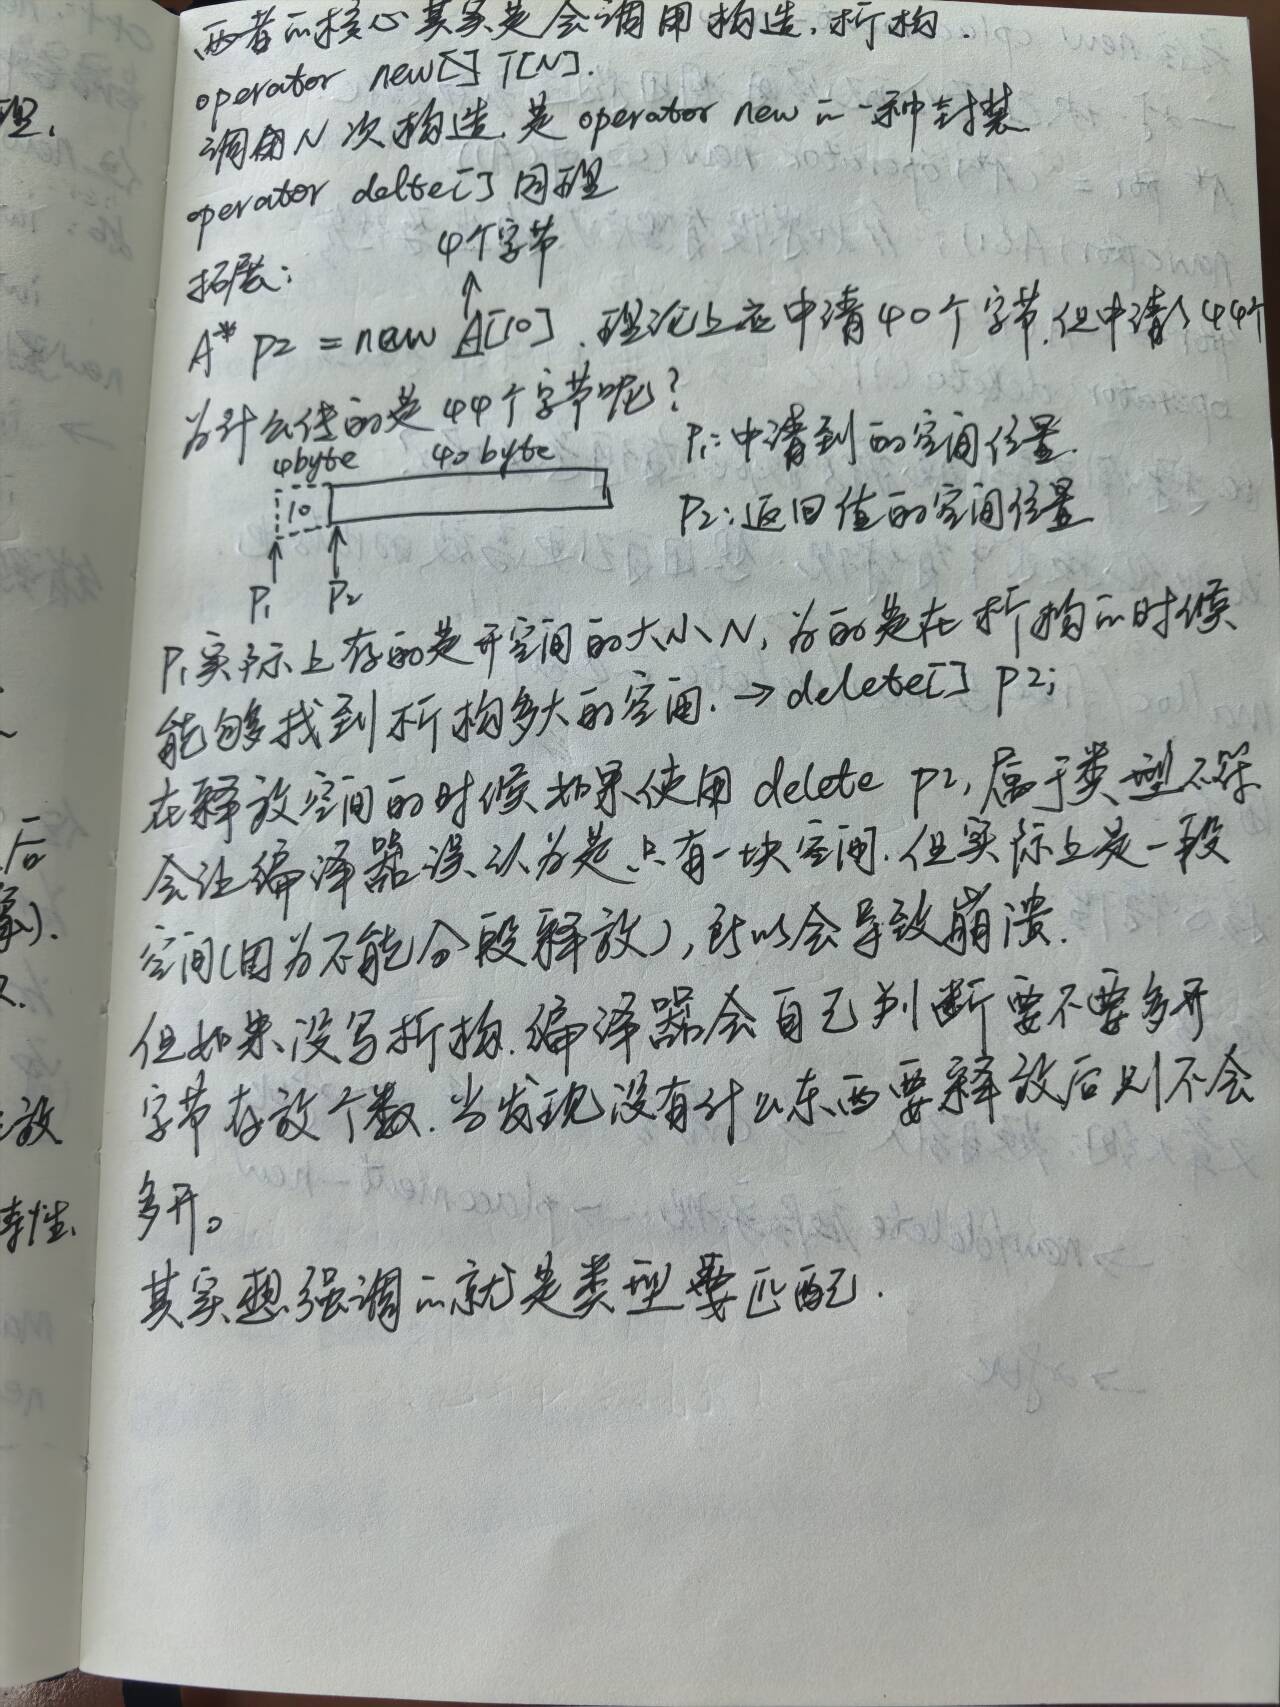 两者的核心其实是会调用构造,析构.
operator new[] T[N].
调用N次构造.是operator new的一种封装
operator delte[]同理
4个字节
拓展:
A* p2 = new A[10].理论上应申请40个字节.但申请了44个
为什么传的是44个字节呢?
4byte 40byte
10
P1 P2
P1:申请到的空间位置.
P2:返回值的空间位置
P1实际上存的是开空间的大小N,为的是在析构的时候
能够找到析构多大的空间.→delete[] p2;
在释放空间的时候如果使用delete p2,属于类型不符
会让编译器误认为是只有一块空间.但实际上是一段
空间(因为不能分段释放),所以会导致崩溃.
但如果没写析构.编译器会自己判断要不要多开
字节存放个数.当发现没有什么东西要释放后则不会
多开。
其实想强调的就是类型要匹配.
理,
后
放